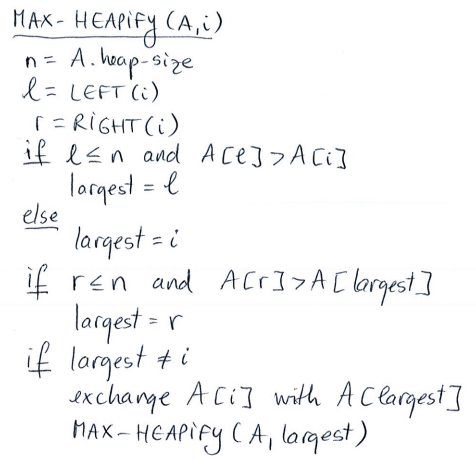 MAX-HEAPIFY(A,i)
n = A.heap-size
l = LEFT(i)
r = RIGHT(i)
if l≤n and A[l]>A[i]
largest = l
else
largest = i
if r≤n and A[r]>A[largest]
largest = r
if largest ≠ i
exchange A[i] with A[largest]
MAX-HEAPIFY(A, largest)